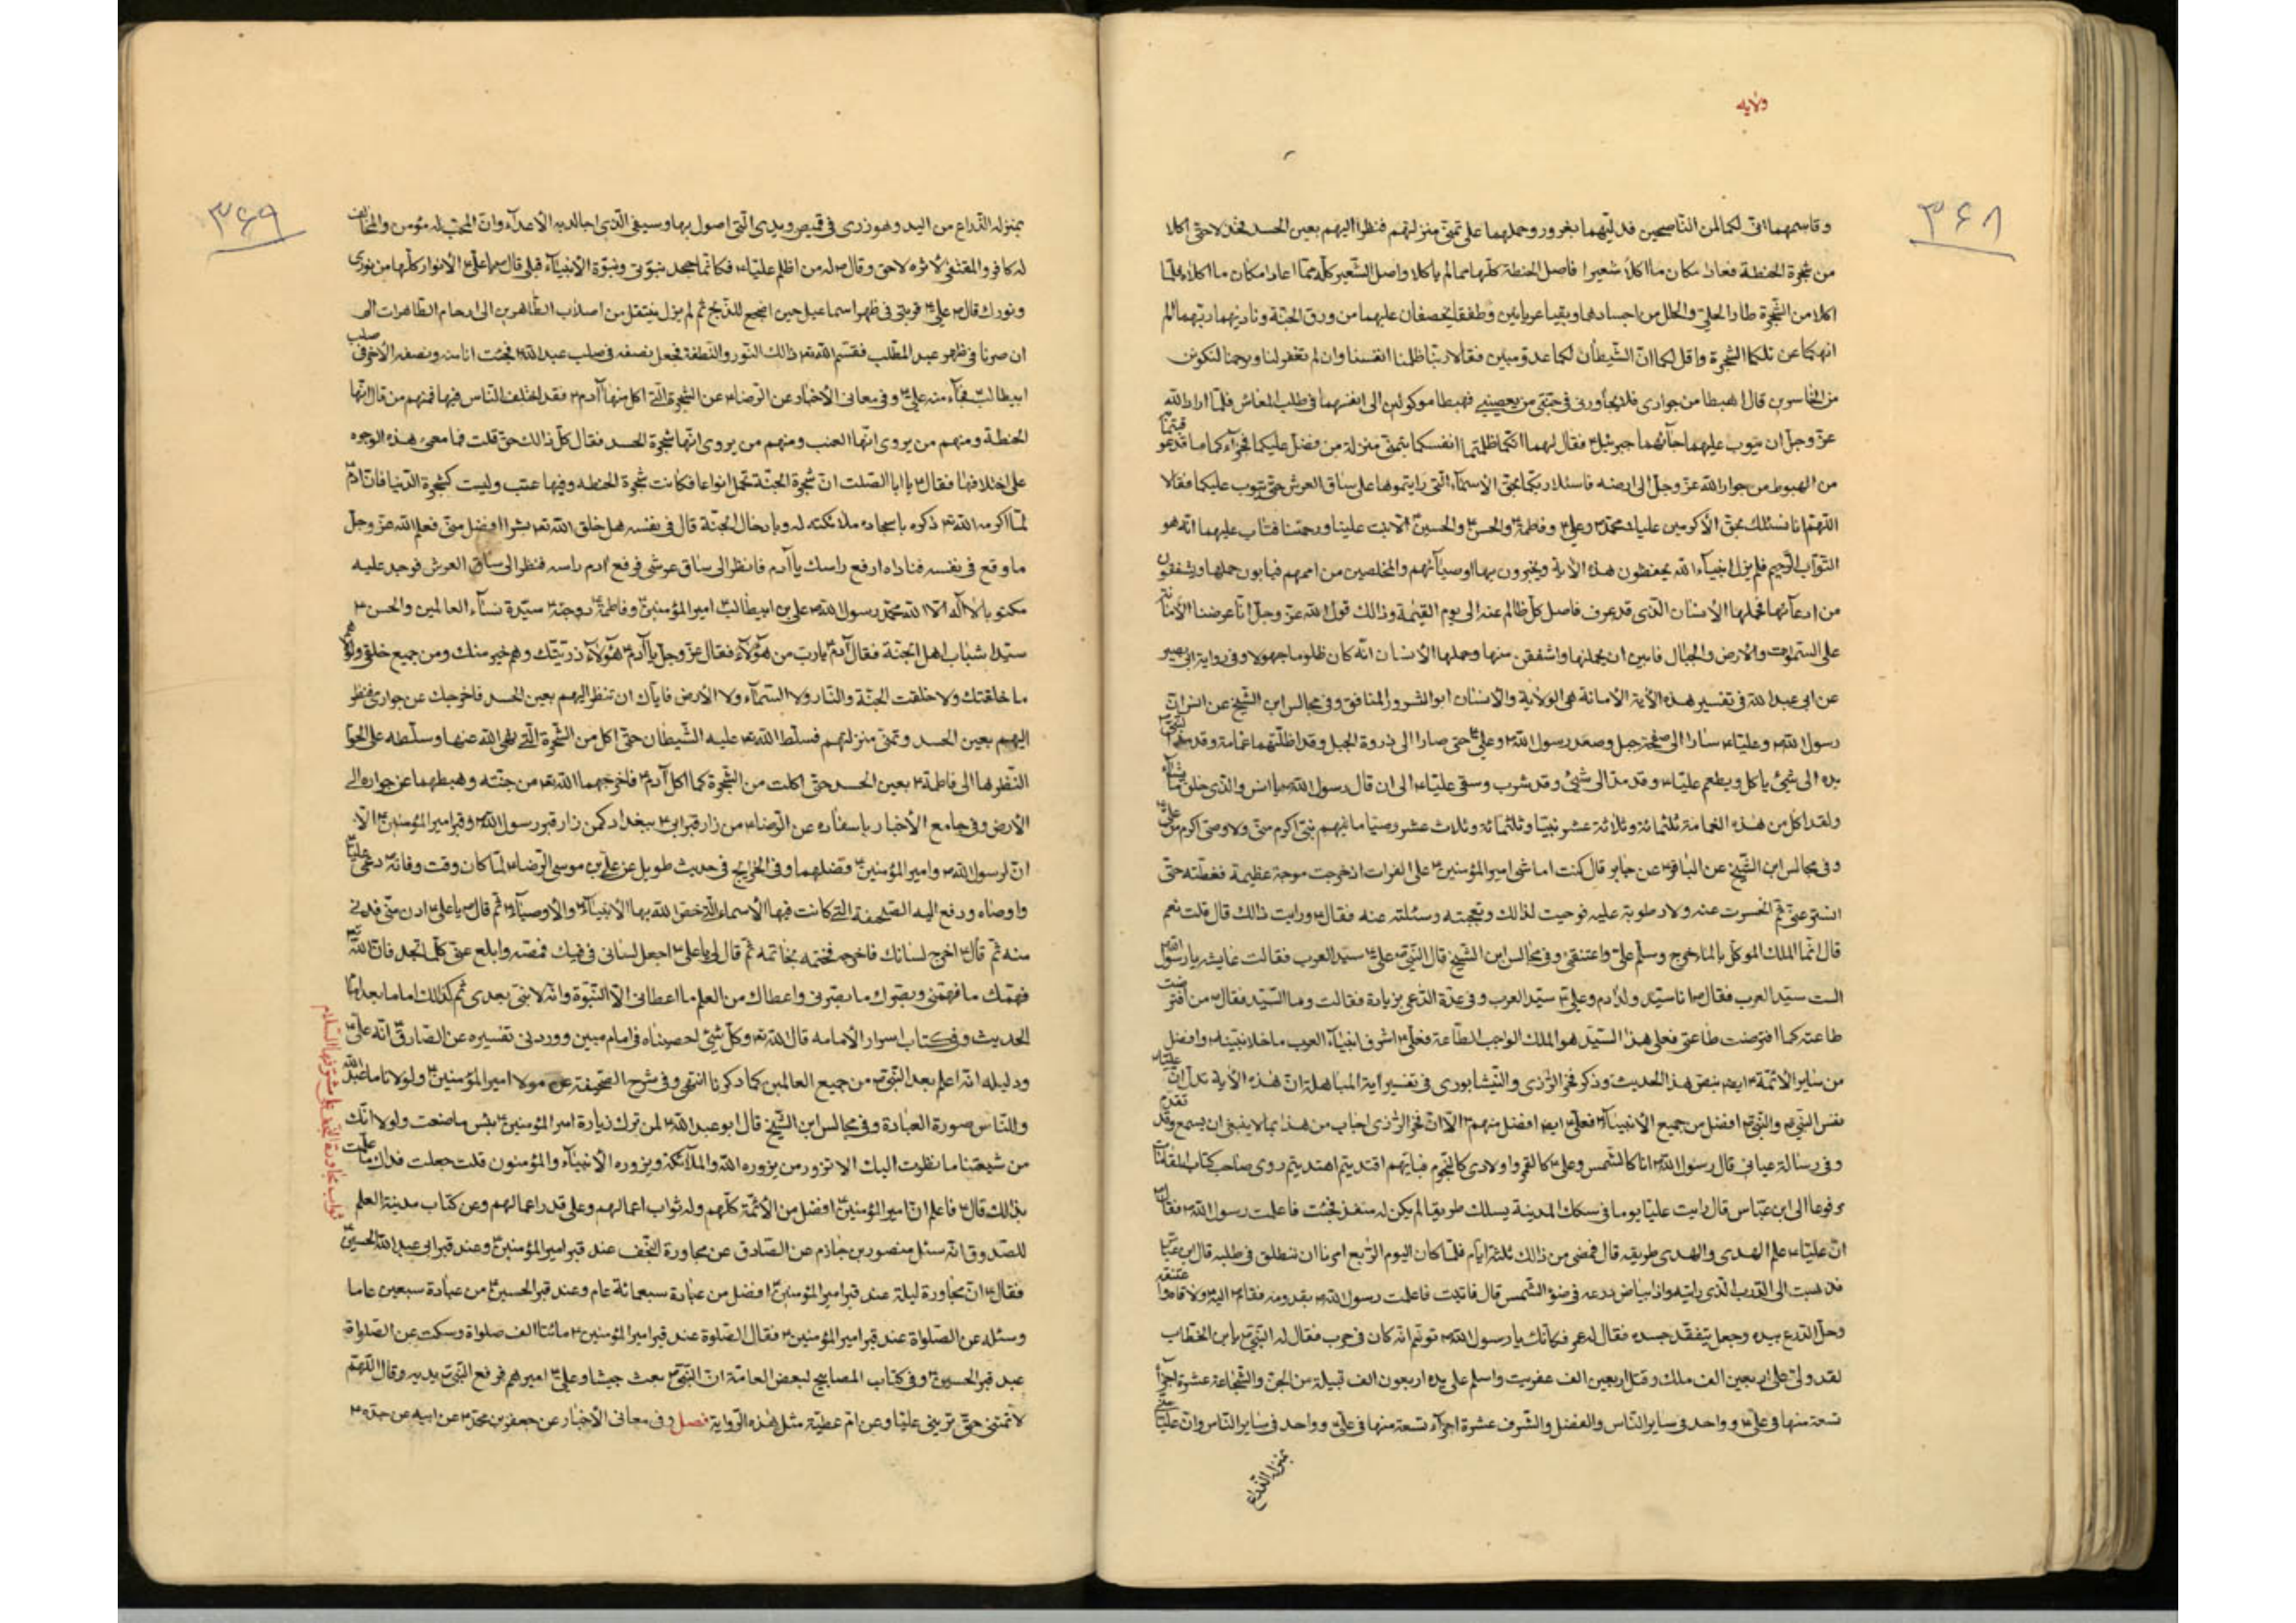 ولایله
۳۶۸
وقاسمهما انی لکما لمن الناصحین فدلیهما بغرور وحملهما علی تمنی منزلتهم فنظرا الیهم بعین الحسد فخذلا حتی اکلا
من شجرة الحنطة فعاد مکان ما اکلا شعیرا فاصل الحنطة کلها مما لم یاکلا واصل الشعیر کله مما عاد مکان ما اکلاه فلما
اکلا من الشجرة طار الحلی والحلل من اجسادهما وبقیا عریانین وطفقا یخصفان علیهما من ورق الجنة ونادیهما ربهما الم
انهکما عن تلکما الشجرة واقل لکما ان الشیطان لکما عدو مبین فقالا ربنا ظلمنا انفسنا وان لم تغفر لنا وترحمنا لنکونن
من الخاسرین قال اهبطا من جواری فلا یجاورنی فی جنتی من یعصینی فهبطا موکولین الی انفسهما فی طلب المعاش فلما اراد الله
عز وجل ان یتوب علیهما جاءهما جبرئیل فقال لهما انکما ظلمتما انفسکما بتمنی منزلة من فضل علیکما فجزاءکما ما قد عوقبتما
من الهبوط من جوار الله عز وجل الی ارضه فاسئلا ربکما بحق الاسماء التی رایتموها علی ساق العرش حتی یتوب علیکما فقالا
اللهم انا نسئلک بحق الاکرمین علیک محمد وعلی وفاطمة والحسن والحسین الا تبت علینا ورحمتنا فتاب علیهما انه هو
التواب الرحیم فلم یزل انبیاء الله یحفظون هذه الامانة ویخبرون بها اوصیائهم والمخلصین من اممهم فیابون حملها ویشفقون
من ادعائها فحملها الانسان الذی قد عرف فاصل کل ظالم منه الی یوم القیمة وذالک قول الله عز وجل انا عرضنا الامانة
علی السموات والارض والجبال فابین ان یحملنها واشفقن منها وحملها الانسان انه کان ظلوما جهولا وفی روایة ابی بصیر
عن ابی عبد الله فی تفسیر هذه الآیة الامانة هی الولایة والانسان ابو الشرور المنافق وفی مجالس ابن الشیخ عن انس ان
رسول الله وعلیا سارا الی جبل وصعد رسول الله وعلی حتی صارا الی ذروة الجبل وقد اظلتهما غمامة وقد مد النبی
یده الی شیئ یاکل ویطعم علیا وقد مد الی شیئ وقد شرب وسقی علیا الی ان قال رسول الله یا انس والذی خلق ما یشاء
ولقد اکل من هذه الغمامة ثلثمائة وثلاثة عشر نبیا وثلثمائة وثلاث عشر وصیا ما فیهم نبی اکرم منی ولا وصی اکرم من علی
وفی مجالس ابن الشیخ عن الباقر عن جابر قال کنت اماشی امیر المؤمنین علی الفرات اذ خرجت موجة عظیمة فغطته حتی
استتر عنی ثم انحسرت عنه ولا رطوبة علیه فوجیت لذالک وتعجبته وسئلته عنه فقال ورایت ذالک قال قلت نعم
قال انما الملک الموکل بالماء خرج وسلم علی واعتنقنی وفی مجالس ابن الشیخ قال النبی علی سید العرب فقالت عایشه یا رسول الله
الست سید العرب فقال انا سید ولد آدم وعلی سید العرب وفی عدة الداعی بزیادة فقالت وما السید فقال من افترضت
طاعته کما افترضت طاعتی فعلی هذا السید هو الملک الواجب الطاعة فعلی اشرف انبیاء العرب ما خلا نبینا وافضل
من سایر الائمة ایضا بنص هذا الحدیث وذکر فخر الرازی والنیشابوری فی تفسیر آیة المباهلة ان هذه الآیة تدل ان علیا
نفس النبی والنبی افضل من جمیع الانبیاء فعلی ایضا افضل منهم الا ان فخر الرازی اجاب من هذا بما لا ینبغی ان یسمع وقد تقدم
وفی رسالة عیانی قال رسول الله انا کالشمس وعلی کالقمر واولادی کالنجوم فبایهم اقتدیتم اهتدیتم روی صاحب کتاب المقامات
مرفوعا الی ابن عباس قال رایت علیا یوما فی سکک المدینة یسلک طریقا لم یکن له منفذ فجئت فاعلمت رسول الله فقال
ان علیا علم الهدی والهدی طریقه قال فمضی من ذالک ثلثة ایام فلما کان الیوم الرابع امرنا ان ننطلق فی طلبه قال ابن عباس
فذهبت الی الدرب الذی رایته واذا بیاض درعه فی ضوء الشمس قال فاتیت فاعلمت رسول الله بقدومه فقام الیه ولاقاه واعتنقه
وحل الدرع بیده وجعل یتفقد جسده فقال له عمر فکانک یا رسول الله توهم انه کان فی حرب فقال له النبی یا بن الخطاب
لقد ولی علی اربعین الف ملک وقتل اربعین الف عفریت واسلم علی یده اربعون الف قبیلة من الجن والشجاعة عشرة اجزاء
تسعة منها فی علی وواحد فی سایر الناس والفضل والشرف عشرة اجزاء تسعة منها فی علی وواحد فی سایر الناس وان علیا
بمنزلة الذراع
۳۶۹
بمنزلة الذراع من الید وهو زری فی قمیصی ویدی التی اصول بها وسیفی الذی اجالد به الاعداء وان المحب له مؤمن والمخالف
له کافر والمقتفی لاثره لاحق وقال له من اظلم علیا فکانما جحد نبوتی ونبوة الانبیاء قبلی قال یا علی الانوار کلها من نوری
ونورک قال علی فربتی فی ظهر اسماعیل حین اضجع للذبح ثم لم یزل ینتقل من اصلاب الطاهرین الی ارحام الطاهرات الی
ان صرنا فی ظهر عبد المطلب فقسم الله ذالک النور والنطفة فجعل نصفه فی صلب عبد الله فجئت انا منه ونصفه الآخر فی صلب
ابیطالب فجاء منه علی وفی معانی الاخبار عن الرضا عن الشجرة التی اکل منها آدم فقد اختلف الناس فیها فمنهم من قال انها
الحنطة ومنهم من یروی انها العنب ومنهم من یروی انها شجرة الحسد فقال کل ذالک حق قلت فما معنی هذه الوجوه
علی اختلافها فقال یا ابا الصلت ان شجرة الجنة تحمل انواعا فکانت شجرة الحنطه وفیها عنب ولیست کشجرة الدنیا فان آدم
لما اکرمه الله ذکره باسجاده ملائکته له وبادخال الجنة قال فی نفسه هل خلق الله بشرا افضل منی فعلم الله عز وجل
ما وقع فی نفسه فناداه ارفع راسک یا آدم فانظر الی ساق عرشی فرفع آدم راسه فنظر الی ساق العرش فوجد علیه
مکتوبا لا اله الا الله محمد رسول الله علی بن ابیطالب امیر المؤمنین وفاطمة زوجته سیدة نساء العالمین والحسن
سیدا شباب اهل الجنة فقال آدم یا رب من هؤلاء فقال عز وجل یا آدم هؤلاء ذریتک وهم خیر منک ومن جمیع خلقی ولولا هم
ما خلقتک ولا خلقت الجنة والنار ولا السماء ولا الارض فایاک ان تنظر الیهم بعین الحسد فاخرجک عن جواری فنظر
الیهم بعین الحسد وتمنی منزلتهم فسلط الله علیه الشیطان حتی اکل من الشجرة التی نهی الله عنها وسلطه علی الحوا
النظرها الی فاطمة بعین الحسد حتی اکلت من الشجرة کما اکل آدم فاخرجهما الله من جنته وهبطهما عن جواره الی
الارض وفی جامع الاخبار باسناده عن الرضا من زار قبر ابی ببغداد کمن زار قبر رسول الله وقبر امیر المؤمنین الا
ان لرسول الله وامیر المؤمنین فضلهما وفی الخرایج فی حدیث طویل عن علی بن موسی الرضا لما کان وقت وفاته دعی علیا
واوصاه ودفع الیه الصحیفة التی کانت فیها الاسماء التی خص الله بها الانبیاء والاوصیاء ثم قال یا علی ادن منی فدنی
منه ثم قال اخرج لسانک فاخرجه فختمه بخاتمه ثم قال لی یا علی اجعل لسانی فی فیک فمصه وابلع عنی کل ما تجد فان الله
فهمک ما فهمنی وبصرک ما بصرنی واعطاک من العلم ما اعطانی الا النبوة وانه لا نبی بعدی ثم کذالک اماما بعد امام
الحدیث وفی کتاب اسرار الامامه قال الله وکل شیئ احصیناه فی امام مبین وورد فی تفسیره عن الصادق انه علی
ودلیله انه اعلم بعد النبی من جمیع العالمین کما ذکرنا انتهی وفی شرح الصحیفة عن مولا امیر المؤمنین ولولانا ما عبد الله
وللناس صورة العبادة وفی مجالس ابن الشیخ قال ابو عبد الله لمن ترک زیارة امیر المؤمنین بئس ما صنعت ولولا انک
من شیعتنا ما نظرت الیک الا تزور من یزوره الله والملائکة ویزوره الانبیاء والمؤمنون قلت جعلت فداک ما علمت
بذالک قال فاعلم ان امیر المؤمنین افضل من الائمة کلهم وله ثواب اعمالهم وعلی قدر اعمالهم وعن کتاب مدینة العلم
للصدوق انه سئل منصور بن حازم عن الصادق عن مجاورة النجف عند قبر امیر المؤمنین وعند قبر ابی عبد الله الحسین
فقال ان مجاورة لیلة عند قبر امیر المؤمنین افضل من عبادة سبعمائة عام وعند قبر الحسین من عبادة سبعین عاما
وسئله عن الصلواة عند قبر امیر المؤمنین فقال الصلوة عند قبر امیر المؤمنین مائتا الف صلواة وسکت عن الصلواة
عند قبر الحسین وفی کتاب المصابیح لبعض العامة ان النبی بعث جیشا وعلی امیرهم فرفع النبی یدیه وقال اللهم
لا تمتنی حتی ترینی علیا وعن ام عطیة مثل هذه الروایة فصل وفی معانی الاخبار عن جعفر بن محمد عن ابیه عن جده
ثواب مجاورة النجف علی مشرفها السلام